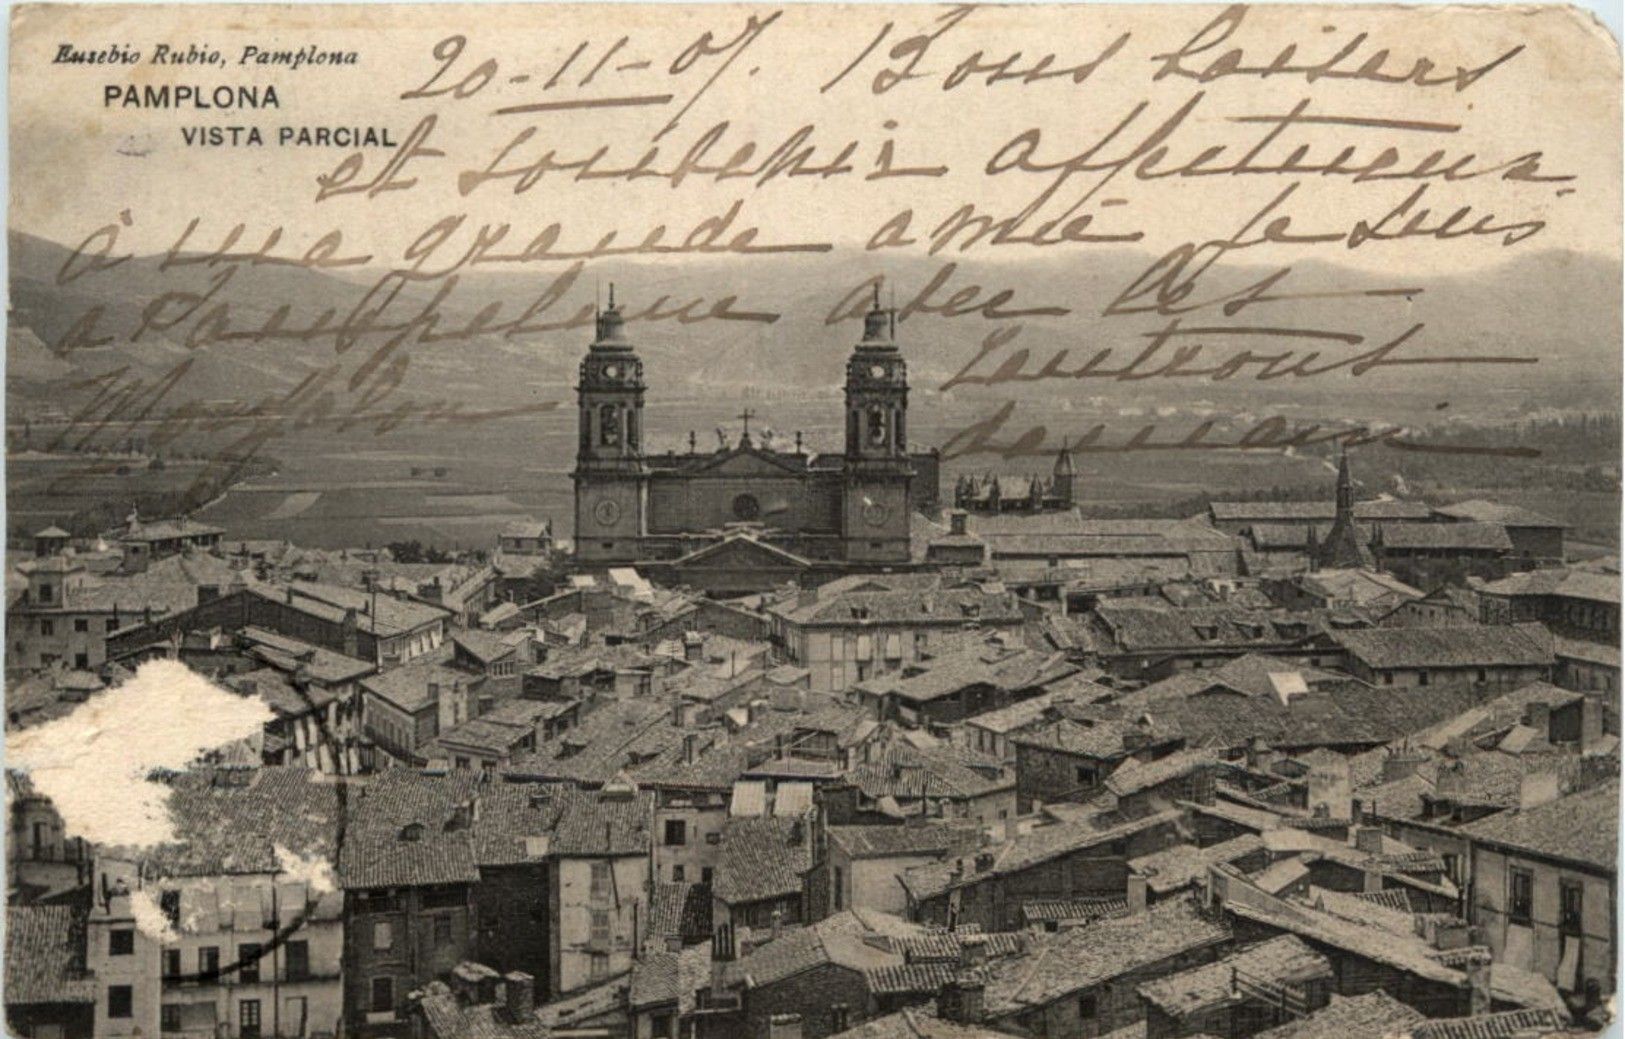 Eusebio Rubio, Pamplona
PAMPLONA
VISTA PARCIAL
20-11-07. Bons baisers
et souvenir affectueux
à ma grande amie je suis
a Pampelune avec les
rentrons
demain